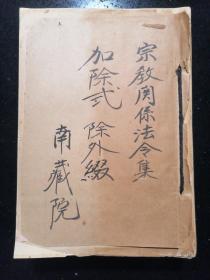 宗教関係法令集
加除式 除外綴
南藏院